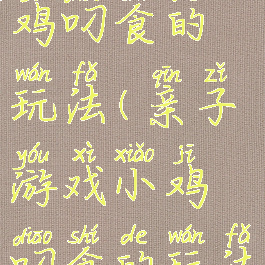 鸡叼食的
wán fǎ qīn zǐ
玩法(亲子
yóu xì xiǎo jī
游戏小鸡
diāo shí de wán fǎ
叼食的玩法